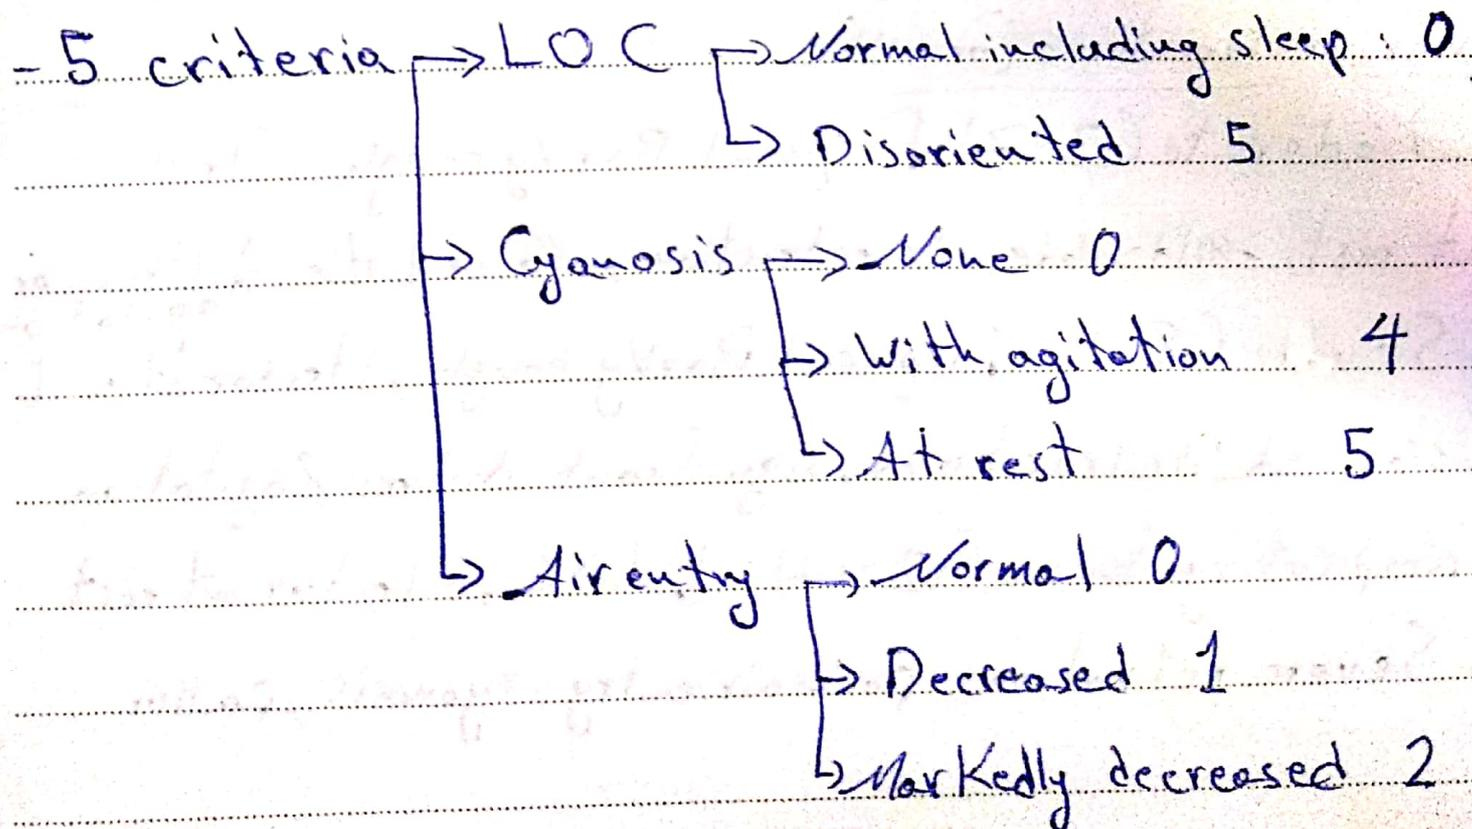 - 5 criteria → LOC → Normal including sleep : 0
→ Disoriented 5
→ Cyanosis → None 0
→ With agitation 4
→ At rest 5
→ Air entry → Normal 0
→ Decreased 1
→ Markedly decreased 2